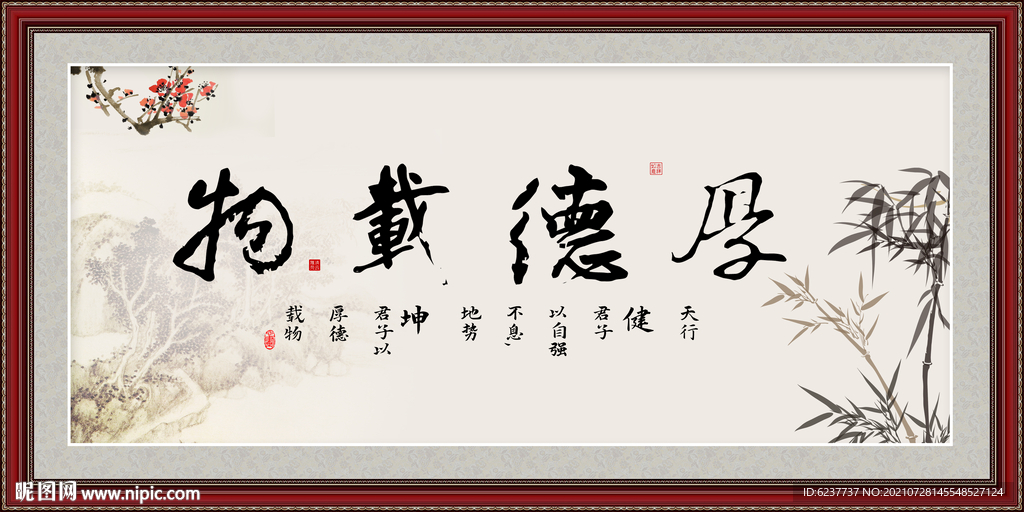 厚德載物
天行
健
君子
以自强
不息、
地势
坤
君子以
厚德
载物
昵图网 www.nipic.com
ID:6237737 NO:20210728145548527124